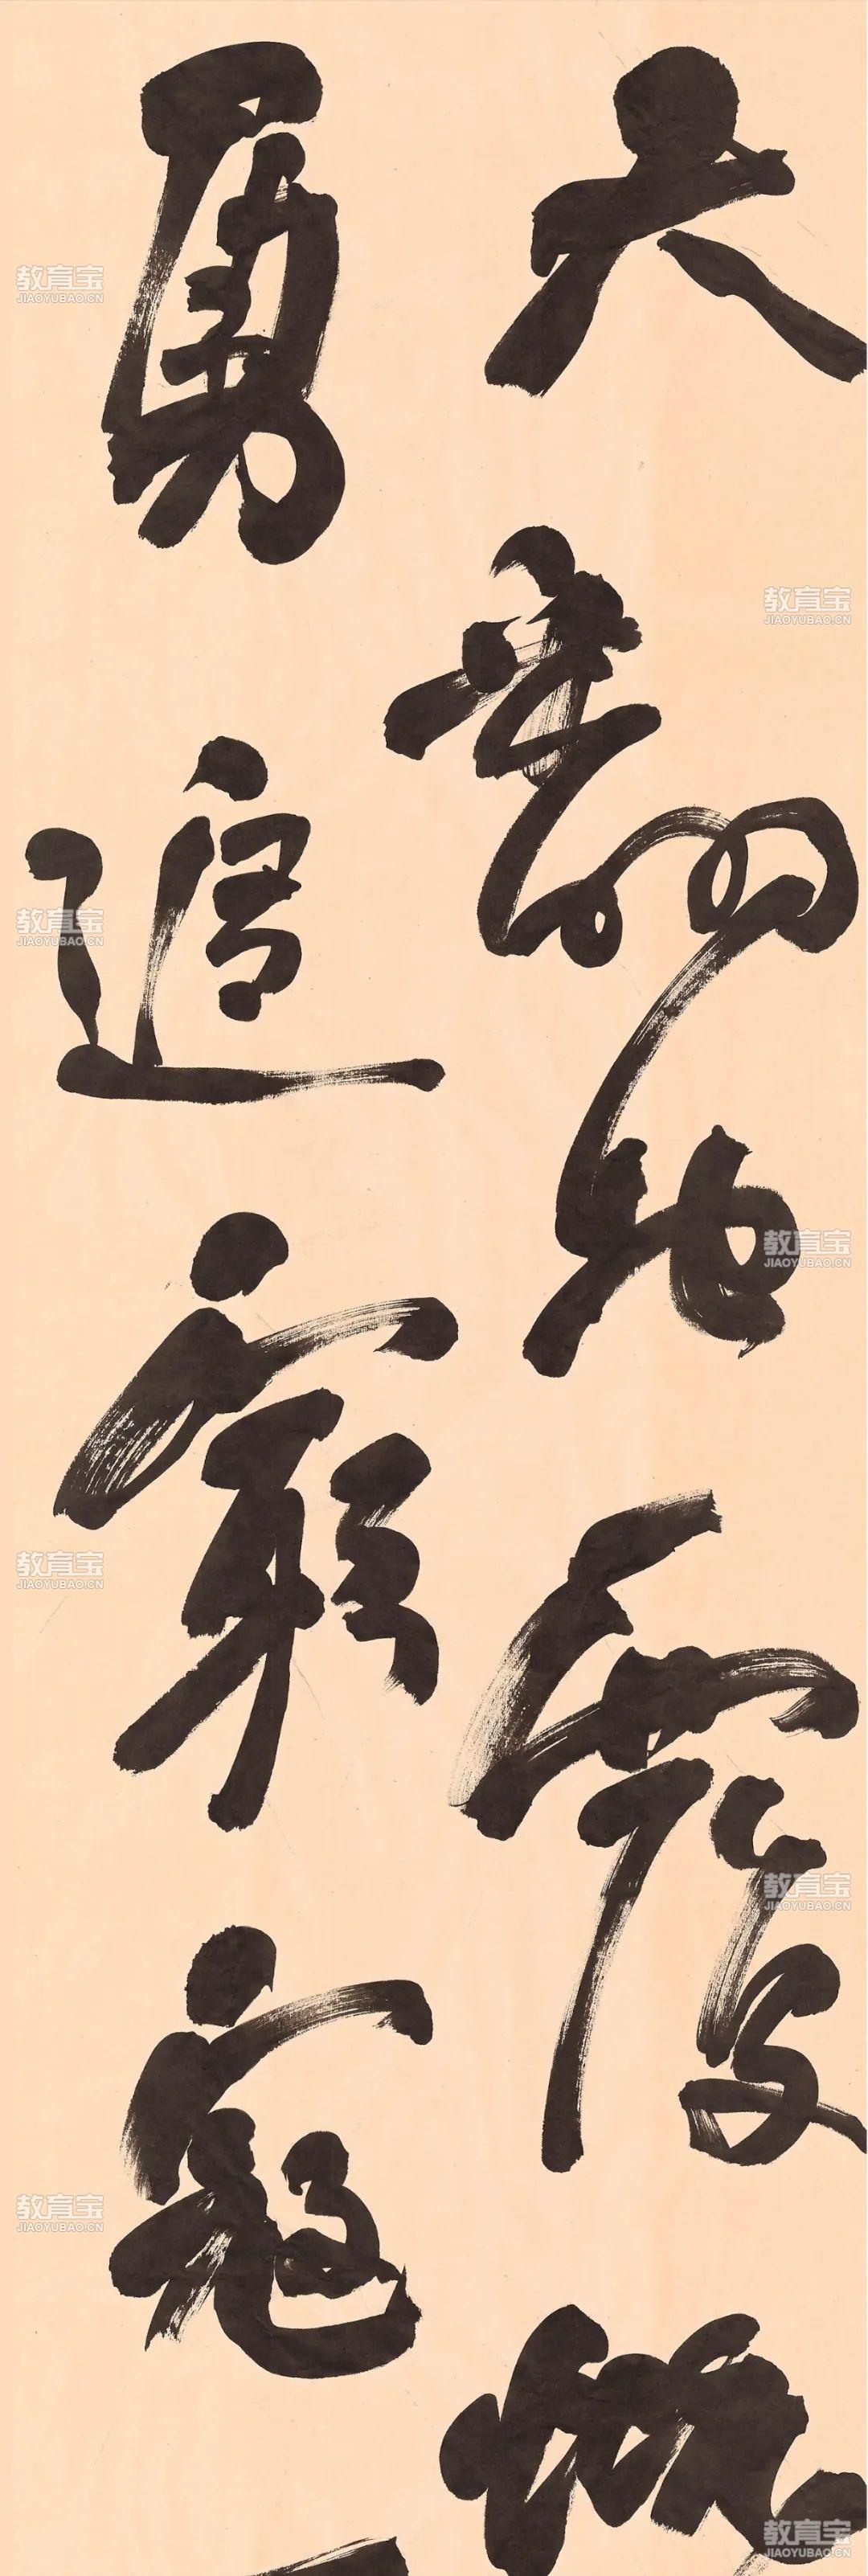 天翻地覆慨
勇追窮寇
教育宝
JIAOYUBAO.CN
教育宝
JIAOYUBAO.CN
教育宝
JIAOYUBAO.CN
教育宝
JIAOYUBAO.CN
教育宝
JIAOYUBAO.CN
教育宝
JIAOYUBAO.CN
教育宝
JIAOYUBAO.CN
教育宝
JIAOYUBAO.CN